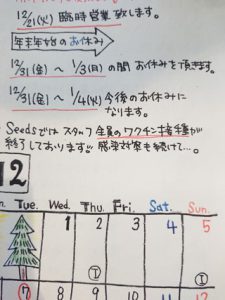 12/21(火) 臨時営業致します。
年末年始のお休み
12/31(金) ～ 1/3(月)の間 お休みを頂きます。
12/31(金) ～ 1/4(火) 今後のお休みに
なります。
Seedsでは スタッフ 全員のワクチン接種が
終了しております!! 感染対策も続けて…。
12
Tue. Wed. Thu. Fri. Sat. Sun.
1 2 3 4 5
7 8 9 10 11 12